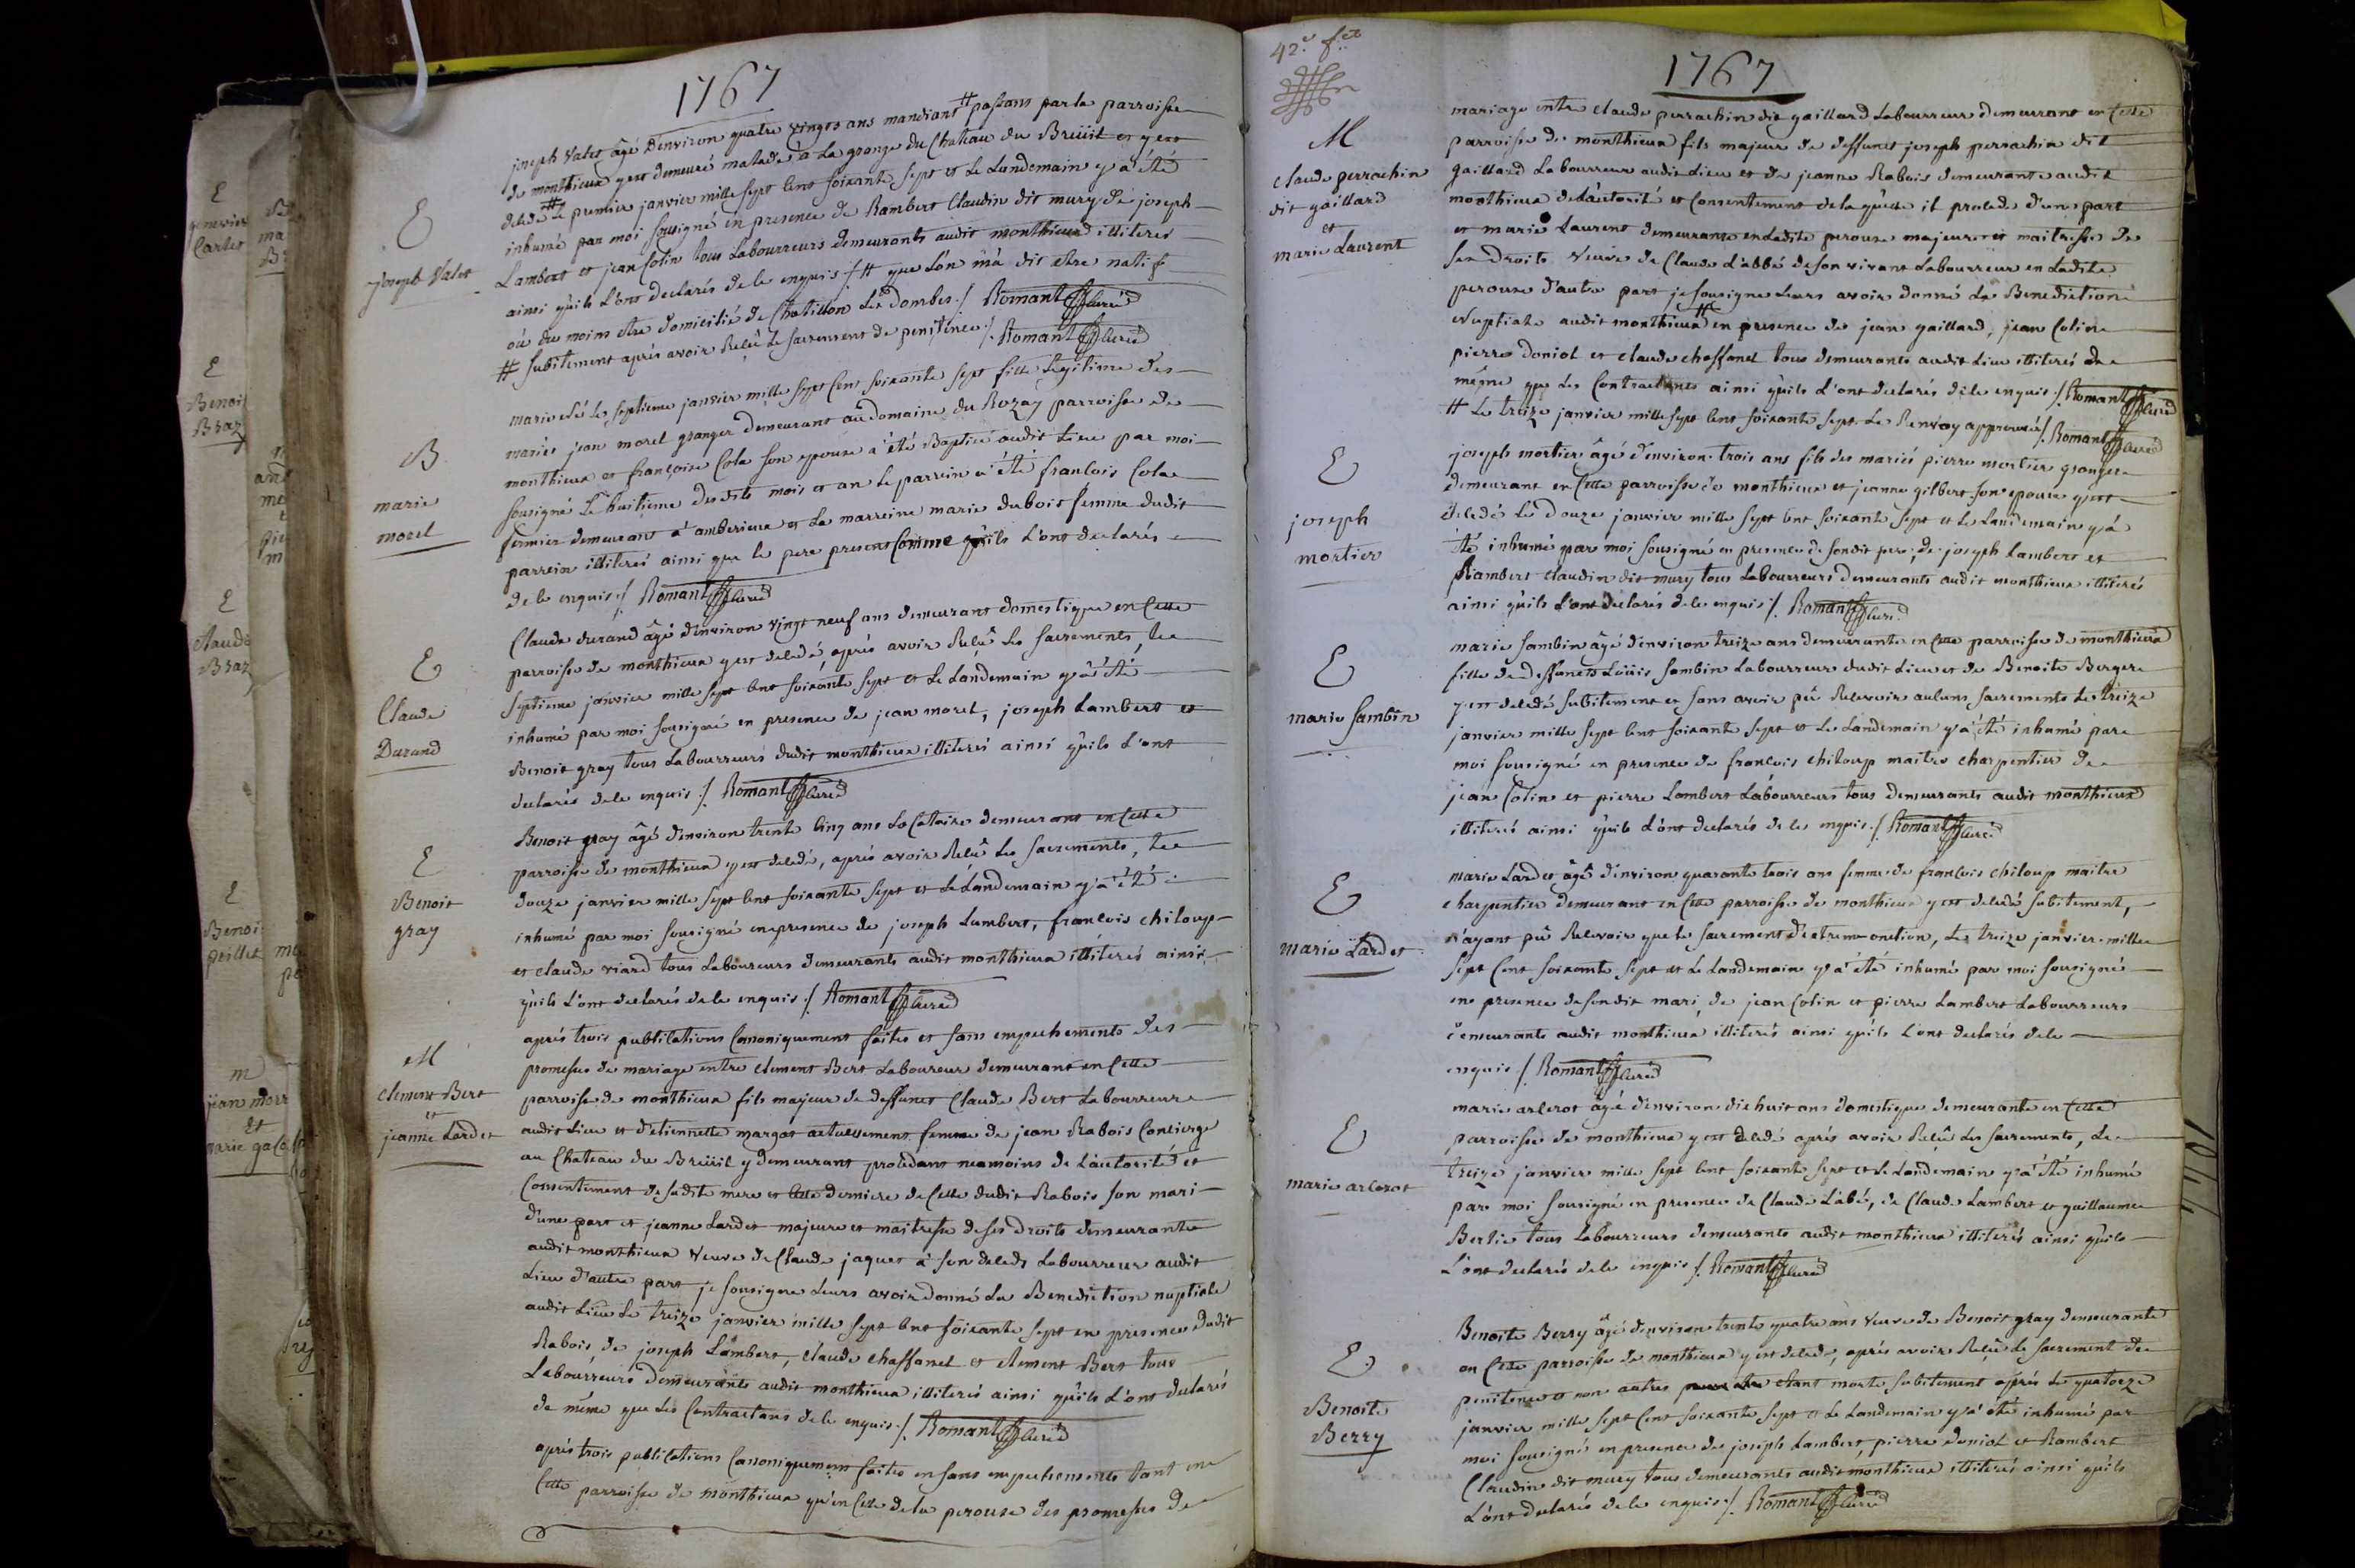 1767
E
joseph Valet
joseph Valet âgé d'environ quatre vingts ans mandiant # passans par la parroisse
de monthieux y est demeuré malade à La grange du Chateau du Breüil et y est
deledé # Le premier janvier mille sept Cent soixante sept et Le Landemain y a été
inhumé par moi sousigné en presence de Rambert Claudin dit mury, de joseph
Lambert et jean Colin tous Labourreurs demeurants audit monthieux illiterés
ainsi qu'ils L'ont declarés de le enquis /. # que L'on m'a dit etre natif
où du moins etre domicilié de Chatillon Les Dombes ./. Romant Curé
# subitement aprés avoir Relû Le sacrement de penitence ./. Romant Curé
B
marie
morel
marie née Le septieme janvier mille sept Cent soixante sept fille Legitime des
mariés jean morel granger demeurant au domaine du Rozay parroisse de
monthieux et françoise Cola son epouse a été Baptisé audit Lieu par moi
sousigné Le huitieme desdits mois et an Le parrein a été francois Cola
fermier demeurant à amberieux et La marreine marie dubois femme dudit
parrein illiterés ainsi que le pere present Comme qu'ils L'ont declarés
de le enquis ./. Romant Curé
E
Claude
Durand
Claude durand âgé d'environ vingt neuf ans demeurant domestique en Cette
parroisse de monthieux y est deledé, aprés avoir Relû Les sacrements, Le
septieme janvier mille sept Cent soixante sept et Le Landemain y a été
inhumé par moi sousigné en presence de jean morel, joseph Lambert et
Benoit gray tous Labourreurs dudit monthieux illiterés ainsi qu'ils L'ont
declarés de le enquis ./. Romant Curé
E
Benoit
gray
Benoit gray âgé d'environ trente Cinq ans Locataire demeurant en Cette
parroisse de monthieux y est deledé, aprés avoir Relû Les sacrements, Le
douze janvier mille sept Cent soixante sept et Le Landemain y a été
inhumé par moi sousigné en presence de joseph Lambert, francois chiloup
et claude viard tous Laboureurs demeurants audit monthieux illiterés ainsi
qu'ils L'ont declarés de le enquis ./. Romant Curé
M
Clement Bert
et
jeanne Lardet
aprés trois publications Canoniquement faites et sans empechements des
promesses de mariage entre clement Bert Laboureur demeurant en Cette
parroisse de monthieux fils majeur de deffunct Claude Bert Labourreur
audit Lieu et d'etiennette margot actuellement femme de jean Rabois Concierge
au Chateau du Breüil y demeurant proledant neamoins de L'autorité et
Consentement de sadite mere et Cette derniere de Celle dudit Rabois son mari
d'une part et jeanne Lardet majeure et maitresse de ses droits demeurante
audit monthieux Veuve de Claude jaquet à son deleds Labourreur audit
Lieu d'autre part je sousigne Leurs avoir donné La Benediction nuptiale
audit Lieu Le treize janvier mille sept Cent soixante sept en presence dudit
Rabois de joseph Lambert, claude chaffanel et clement Bert tous
Labourreurs demeurants audit monthieux illiterés ainsi qu'ils L'ont declarés
de même que Les Contractans de le enquis ./. Romant Curé
aprés trois publications Canoniquement faites en sans empechements tant en
Cette parroisse de monthieux qu'en Celle de la perouse des promesses de
42.e f.et
1767
M
Claude perrachin
dit gaillard
et
marie Laurent
mariage entre claude perrachin dit gaillard Labourreur demeurant en Cette
parroisse de monthieux fils majeur de deffunct joseph perrachin dit
gaillard Labourreur audit Lieu et de jeanne Rabois demeurante audit
monthieux de L'autorité et Consentement de laquelle il prolede d'une part
et marie Laurent demeurante en Ladite perouse majeure et maitresse de
ses Droits Veuve de Claude L'abbé de son vivant Labourreur en Ladite
perouse d'autre part je sousigne Leurs avoir donné La Benediction
Nuptiale audit monthieux # en presence de jean gaillard, jean Colin
pierre doniol et claude chaffanel tous demeurants audit Lieu illiterés de
même que Les Contractants ainsi qu'ils L'ont declarés de le enquis ./. Romant Curé
# Le treize janvier mille sept Cent soixante sept. Le Renvoy approuvé ./. Romant Curé
E
joseph
mortier
joseph mortier âgé d'environ trois ans fils des mariés pierre mortier granger
demeurant en Cette parroisse de monthieux et jeanne gilbert son epouse y est
deledé Le Douze janvier mille sept Cent soixante sept et Le Landemain y a
été inhumé par moi sousigné en presence de sondit pere, de joseph Lambert et
Rambert claudin dit mury tous Labourreurs demeurants audit monthieux illiterés
ainsi qu'ils L'ont declarés de le enquis ./. Romant Curé
E
marie sambin
marie sambin âgé d'environ treize ans demeurante en Cette parroisse de monthieux
fille de deffuncts Loüis sambin Labourreur dudit Lieu et de Benoite Berger
y est deledé subitement et sans avoir pû Relevoir auluns sacrements Le treize
janvier mille sept Cent soixante sept et Le Landemain y a été inhumé par
moi sousigné en presence de francois chiloup maitre charpentier de
jean Colin et pierre Lambert Labourreurs tous demeurants audit monthieux
illiterés ainsi qu'ils L'ont declarés de les enquis ./. Romant Curé
E
marie Lardet
marie Lardet âgé d'environ quarante trois ans femme de francois chiloup maitre
charpentier demeurant en Cette parroisse de monthieux y est deledé subitement,
n'ayant pû Relevoir que le sacrement d'extreme onction, Le treize janvier mille
sept Cent soixante sept et Le Landemain y a été inhumé par moi sousigné
en presence de sondit mari, de jean Colin et pierre Lambert Labourreurs
demeurants audit monthieux illiterés ainsi qu'ils L'ont declarés de le
enquis ./. Romant Curé
E
marie arlerot
marie arlerot âgé d'environ dixhuit ans domestique demeurante en Cette
parroisse de monthieux y est deledé aprés avoir Relû Les sacrements, Le
treize janvier mille sept Cent soixante sept et Le Landemain y a été inhumé
par moi sousigné en presence de Claude L'abé, de Claude Lambert et guillaume
Berlie tous Labourreurs demeurants audit monthieux illiterés ainsi qu'ils
L'ont declarés de le enquis ./. Romant Curé
E
Benoite
Berry
Benoite Berry âgé d'environ trente quatre ans Veuve de Benoit gray demeurante
en Cette parroisse de monthieux y est deledé, aprés avoir Relû Le sacrement de
penitence et non autres etant morte subitement aprés Le quatorze
janvier mille sept Cent soixante sept et Le Landemain y a été inhumé par
moi sousigné en presence de joseph Lambert, pierre doniol et Rambert
Claudin dit mury tous demeurants audit monthieux illiterés ainsi qu'ils
L'ont declarés de le enquis ./. Romant Curé